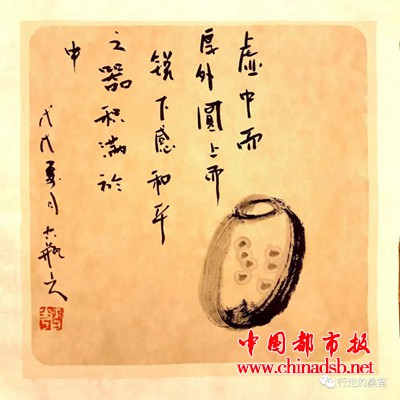 虚中而
厚外圓上而
锐下感和平
之器积满於
中
戊戌夏月
中国都市报
www.chinadsb.net
行走的桑眉